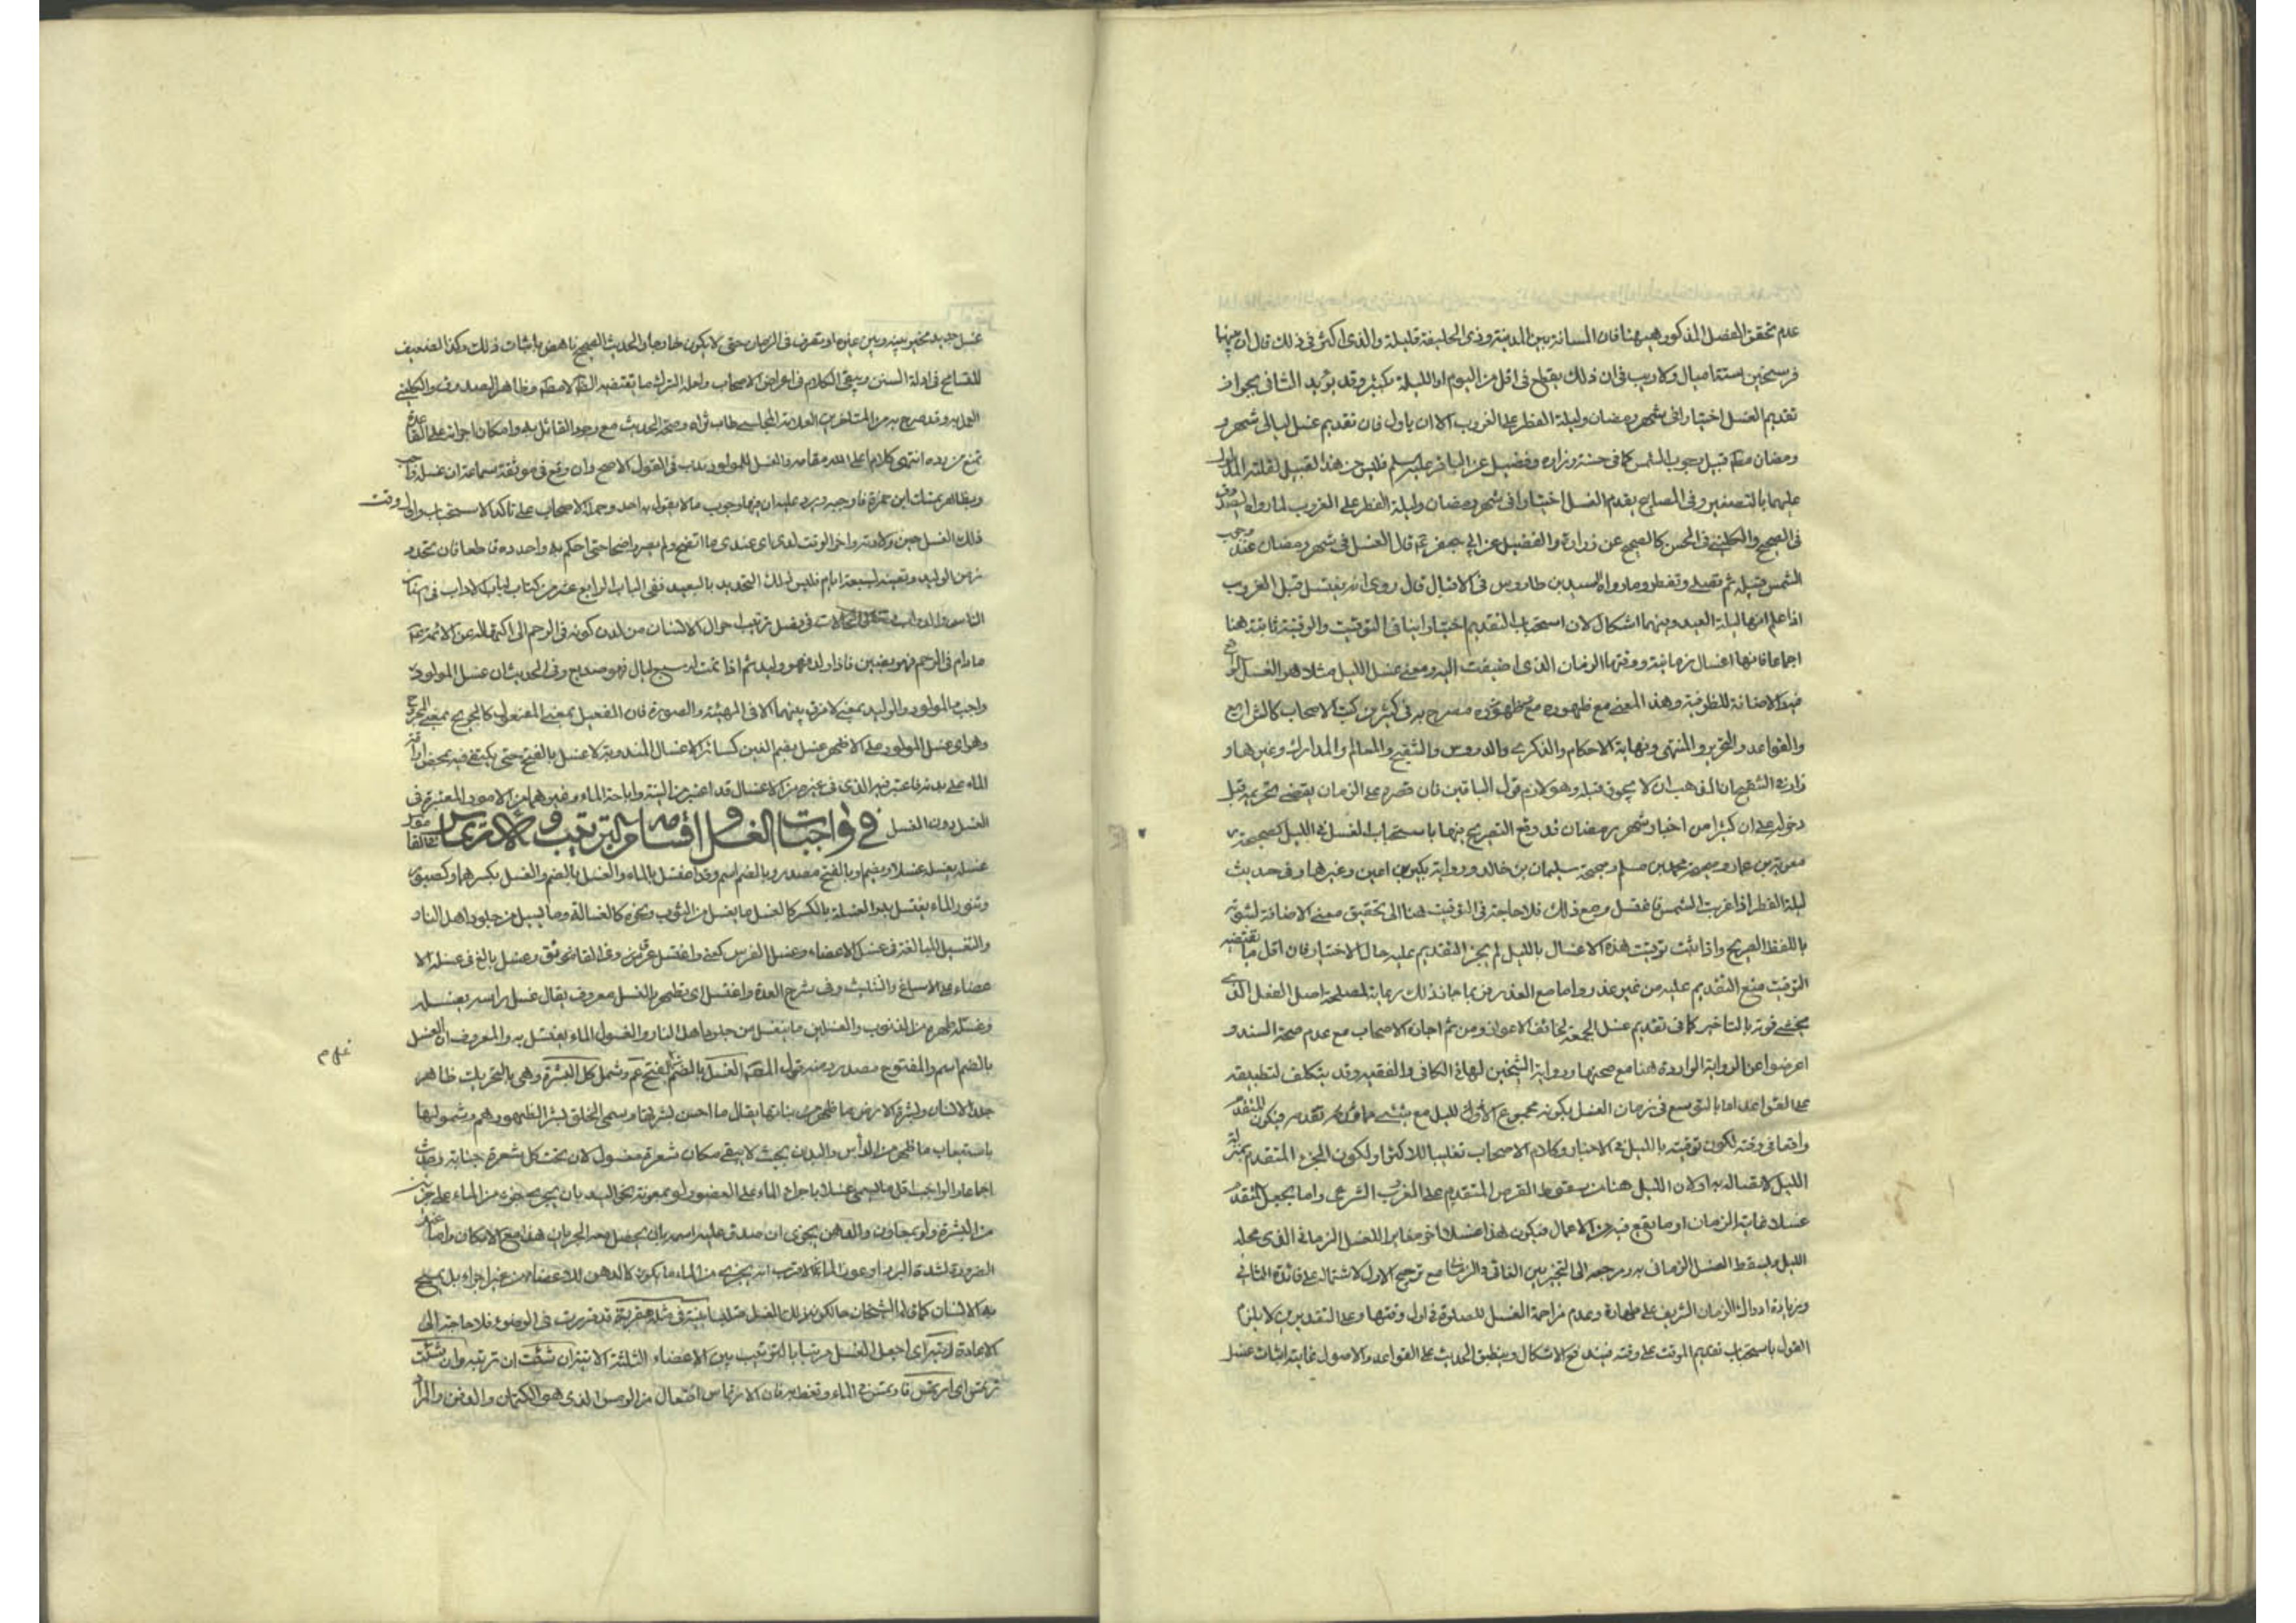 عدم تحقق الفصل المذكور هيهنا فان المسافة بين المدينة وذى الحليفة قليلة والذى اكثر فى ذلك قال ان بينهما
فرسخين ستة اميال ولا ريب فى ان ذلك يقطع فى اقل من اليوم او الليلة بكثير وقد يؤيد الثانى بجواز
تقديم الغسل اختيارا فى شهر رمضان وليلة الفطر على الغروب الا ان ياول فان تقديم غسل ليالى شهر
ومضان قبيل وجوب الشمس كما فى حسنة زرارة وفضيل عن الباقر عليه السلم فليس من هذا القبيل لقلة المدة
عليهما بالتصغير وفى المصابيح يقدم الغسل اختيارا فى شهر رمضان وليلة الفطر على الغروب لما رواه الصدوق
فى الصحيح والكلينى فى الحسن كالصحيح عن زرارة والفضيل عن ابى جعفر ع قال الغسل فى شهر رمضان عند وجوب
الشمس قبيله ثم تصلى وتفطر وما رواه السيد بن طاوس فى الاقبال قال روى انه يغتسل قبل الغروب
اذا علم انها ليلة العيد وبينهما اشكال لان استحباب التقديم اختيارا ينافى التوقيت والوقتية ثابتة هنا
اجماعا فانها اغسال زمانية ووقتها الزمان الذى اضيفت اليه ومعنى غسل الليل مثلا هو الغسل الواقع
فيه الاضافة للظرفية وهذا المعنى مع ظهوره مصرح به فى كثير من كتب الاصحاب كالشرايع
والقواعد والتحرير والمنتهى ونهاية الاحكام والذكرى والدروس والتنقيح والمعالم والمدارك وغيرها و
زاد الشهيدان الذهاب ان لا يجوز قبله وهو لازم قول الباقين فان قصره على الزمان يقتضى تحريمه قبل
دخوله على ان كثيرا من اخبار شهر رمضان قد وقع التصريح بها باستحباب الغسل فى الليل كصحيحة
معوية بن عمار وصحيحة محمد بن مسلم وصحيحة سليمان بن خالد ورواية بكير بن اعين وغيرها وفى حديث
ليلة الفطر اذا غربت الشمس فاغتسل ومع ذلك فلا حاجة فى التوقيت هنا الى تحقيق معنى الاضافة لثبوته
باللفظ الصريح واذا ثبت توقيت هذه الاغسال بالليل لم يجز التقديم عليه حال الاختيار فان اقل ما يقتضيه
التوقيت منع التقديم عليه من غير عذر واما مع العذر فربما جاز ذلك رعاية لمصلحة اصل الفعل الذى
يخشى فوته بالتاخير كما فى تقديم غسل الجمعة لخائف الاعواز ومن ثم اجازه الاصحاب مع عدم صحة السند و
اعرضوا عن الرواية الواردة هنا مع صحتها ورواية الشيخين لها فى الكافى والفقيه وقد يتكلف لتطبيقه
على القواعد اما بالتوسع فى زمان الغسل بكونه مجموع الليل مع شئ مما قبله فيكون المتقدم
واقعا فى وقته لكون توقيته بالليل فى الاخبار وكلام الاصحاب تغليبا للاكثر او لكون الجزء المتقدم بمنزلة
الليل لاتصاله به او لان الليل هنا من سقوط القرص المتقدم على المغرب الشرعى واما بجعل المتقدم
غسلا لغاية الزمان او ما يقع فيه من الاعمال فيكون هذا غسلا اخر مغايرا للغسل الزمانى الذى محله
الليل وليسقط الغسل الزمانى به ومرجعه الى التخيير بين الغائى والزمانى مع ترجيح الاول لاشتماله على فائدة الثانى
وزيادة ادراك الزمان الشريف على طهارة وعدم مزاحمة الغسل للصلوة فى اول وقتها وعلى التقديرين لا يلزم
القول باستحباب تقديم الموقت على وقته فيندفع الاشكال وينطبق الحديث على القواعد والاصول غايته اثبات غسل
غسل جديد مخير بينه وبين غيره او تصرف فى الزمان حتى لا يكون خارجا والحديث الصحيح ناهض باثبات ذلك وكذا الضعيف
للتسامح فى ادلة السنن ويبقى الكلام فى اعراض الاصحاب ولعله وظاهر الصدوق والكلينى
العمل به وقد صرح به من المتاخرين العلامة المجلسى طاب ثراه وصحة الحديث مع وجود القائل به وامكان اجرائه على القاعدة
تمنع من رده انتهى كلام اعلى الله مقامه والغسل للمولود ندب فى القول الاصح وان وقع فى موثقة سماعة ان غسله واجب
وبظاهره تمسك ابن حمزة فاوجبه ويرد عليه ان فيها وجوب ما لا يقول به احد وحمله الاصحاب على تاكد الاستحباب والى وقت
ذلك الغسل حين ولادته واخر الوقت لدى اى عندى ما اتضح ولم يصر واضحا حتى احكم به واحدده قاطعا فان تحدد
زمن الوليد وتعينه لسبعة ايام فليس لذلك التحديد بالبعيد ففى الباب الرابع عشر من كتاب لباب الاداب فى
الناس فى فصل ترتيب احوال الانسان من لدن كونه فى الرحم الى اكتهاله عن الائمة
ما دام فى الرحم فهو جنين فاذا ولد فهو وليد ثم اذا تمت له سبع ليال فهو صديع وفى الحديث ان غسل المولود
واجب والمولود والوليد بمعنى لا فرق بينهما الا فى الهيئة والصورة فان الفعيل بمعنى المفعول كالجريح بمعنى المجروح
وهو اى غسل المولود على الاظهر غسل بضم الغين كسائر الاغسال المندوبة لا غسل بالفتح حتى يكتفى فيه بمحض اراقة
الماء على بدنه فاعتبر فيه الذى فى غيره من الاغسال قد اعتبر من النية واباحة الماء وغيرهما من الامور المعتبرة فى
الغسل دون الغسل فى واجبات الغسل واقسامه من الترتيب والارتماس
غسله يغسله غسلا ويضم او بالفتح مصدر وبالضم اسم وقد اغتسل بالماء والغسل بالضم والغسل بكسرهما وكصبور
وتنور الماء يغتسل به والغسلة بالكسر كالغسل ما يغسل من الثوب ونحوه كالغسالة وما يسيل من جلود اهل النار
والتغسيل المبالغة فى غسل الاعضاء وغسل الفرس كعنى واغتسل عرق وبالغ فى غسله الا
عضاء على الاسباغ والتثليث وفى شرح العدة واغتسل اى تطهر والغسل معروف يقال غسل راسه يغسله
وغسله طهره من الذنوب والغسلين ما ينغسل من جلود اهل النار والغسول الماء يغتسل به والمعروف ان الغسل
بالضم اسم والمفتوح مصدر ومنه قوله المص الغسل بالضم لا الفتح عم وشمل كل البشرة وهى بالتحريك ظاهر
جلد الانسان وبشرة الارض ما ظهر من نباتها يقال ما احسن بشرتها وسمى الخلق بشرا لظهورهم وشمولها
باستيعاب ما ظهر من الراس والبدن بحيث لا يبقى مكان شعرة مغسول لان تحت كل شعرة جنابة
اجماعا والواجب اقل ما يسمى غسلا باجراء الماء على العضو ولو بمعونة نحو اليد بان يجرى جزء من الماء على جزئين
من البشرة ولو بمعاون والدهن يجزى ان صدق عليه اسمه بان يحصل معه الجريان هذا مع الامكان واما عند
الضرورة لشدة البرد او عوز الماء فالاقرب انه يجزيه من الماء ما يكون كالدهن للاعضاء من غير اجراء بل يمسح
به الانسان كما قاله الشيخان حالكون ذلك الغسل قد تقررت فى الوضوء فلا حاجة الى
الاعادة رتبه اى اجعل الغسل مرتبا بالترتيب بين الاعضاء الثلثة الاتية ان شئت ان ترتبه وان شئت
ترتمس اى ارتمس فارتمس فى الماء وتغط به فان الارتماس افتعال من الرمس الذى هو الكتمان والدفن والمراد